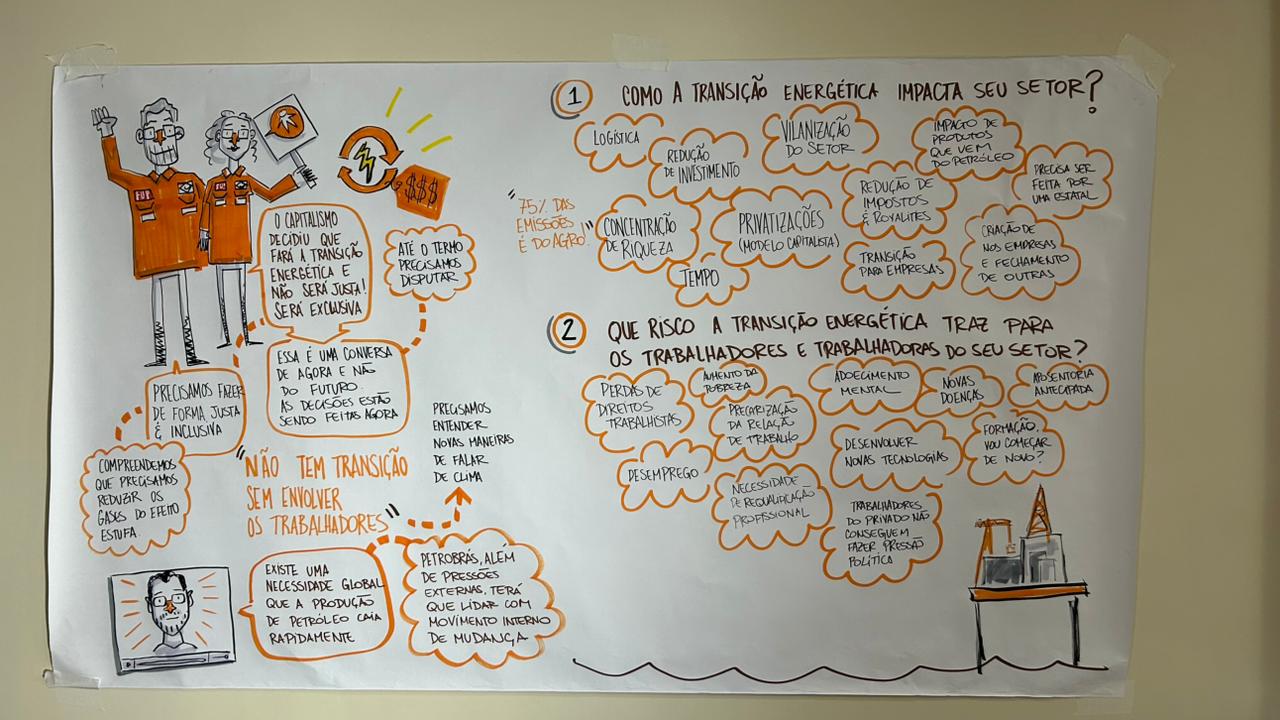 FUP
FUP
$$$
O CAPITALISMO
DECIDIU QUE
FARÁ A TRANSIÇÃO
ENERGÉTICA E
NÃO SERÁ JUSTA!
SERÁ EXCLUSIVA
ATÉ O TERMO
PRECISAMOS
DISPUTAR
ESSA É UMA CONVERSA
DE AGORA E NÃO
DO FUTURO.
AS DECISÕES ESTÃO
SENDO FEITAS AGORA
PRECISAMOS FAZER
DE FORMA JUSTA
& INCLUSIVA
COMPREENDEMOS
QUE PRECISAMOS
REDUZIR OS
GASES DO EFEITO
ESTUFA.
"NÃO TEM TRANSIÇÃO
SEM ENVOLVER
OS TRABALHADORES"
PRECISAMOS
ENTENDER
NOVAS MANEIRAS
DE FALAR
DE CLIMA
EXISTE UMA
NECESSIDADE GLOBAL
QUE A PRODUÇÃO
DE PETRÓLEO CAIA
RAPIDAMENTE
PETROBRÁS, ALÉM
DE PRESSÕES
EXTERNAS, TERÁ
QUE LIDAR COM
MOVIMENTO INTERNO
DE MUDANÇA
1 COMO A TRANSIÇÃO ENERGÉTICA IMPACTA SEU SETOR?
LOGÍSTICA
REDUÇÃO
DE INVESTIMENTO
VILANIZAÇÃO
DO SETOR
IMPACTO DE
PRODUTOS
QUE VEM
DO PETRÓLEO
PRECISA SER
FEITA POR
UMA ESTATAL
"75% DAS
EMISSÕES
É DO AGRO!"
CONCENTRAÇÃO
DE RIQUEZA
PRIVATIZAÇÕES
(MODELO CAPITALISTA)
REDUÇÃO DE
IMPOSTOS
& ROYALITES
TEMPO
TRANSIÇÃO
PARA EMPRESAS
CRIAÇÃO DE
NOS EMPRESAS
E FECHAMENTO
DE OUTRAS
2 QUE RISCO A TRANSIÇÃO ENERGÉTICA TRAZ PARA
OS TRABALHADORES E TRABALHADORAS DO SEU SETOR?
PERDAS DE
DIREITOS
TRABALHISTAS
AUMENTO DA
POBREZA
ADOECIMENTO
MENTAL
NOVAS
DOENÇAS
APOSENTORIA
ANTECIPADA
PRECARIZAÇÃO
DA RELAÇÃO
DE TRABALHO
DESENVOLVER
NOVAS TECNOLOGIAS
FORMAÇÃO,
VOU COMEÇAR
DE NOVO?
DESEMPREGO
NECESSIDADE
DE REQUALIFICAÇÃO
PROFISSIONAL
TRABALHADORES
DO PRIVADO NÃO
CONSEGUEM
FAZER PRESSÃO
POLÍTICA